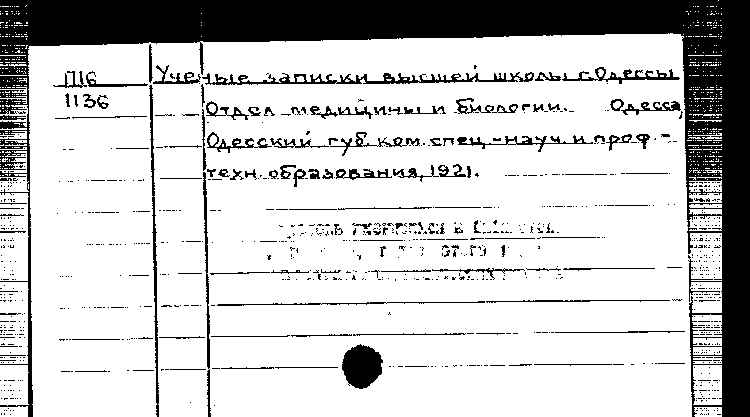 П16 Ученые записки высшей школы г. Одессы
1136 Отдел медицины и биологии. Одесса,
Одесский губ. ком. спец.-науч. и проф.-
техн. образования, 1921.